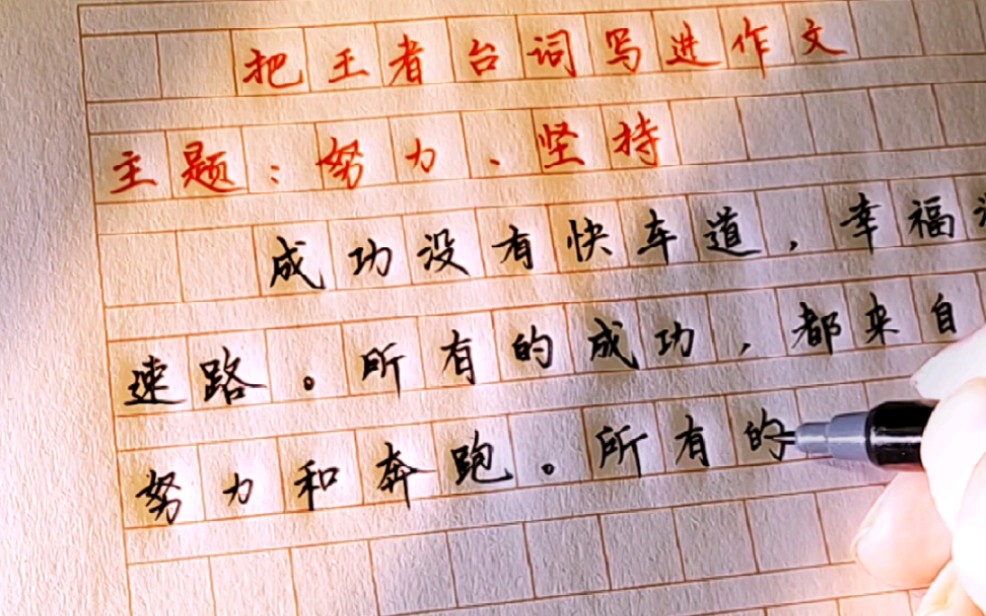 把王者台词写进作文
主题：努力、坚持
成功没有快车道，幸福
速路。所有的成功，都来自
努力和奔跑。所有的